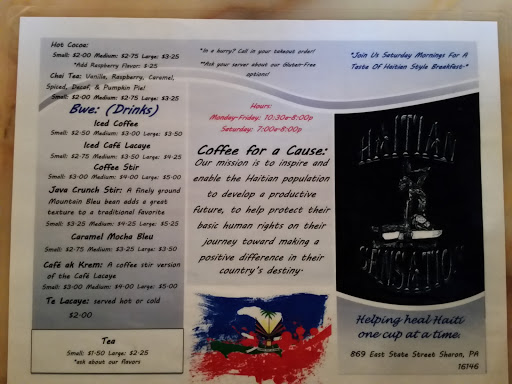 Hot Cocoa:
Small: $2.00 Medium: $2.75 Large: $3.25
*Add Raspberry Flavor: $.25
Chai Tea: Vanilla, Raspberry, Caramel,
Spiced, Decaf, & Pumpkin Pie!
Small: $2.00 Medium: $2.75 Large: $3.25
Bwe: (Drinks)
Iced Coffee
Small: $2.50 Medium: $3.00 Large: $3.50
Iced Café Lacaye
Small: $2.75 Medium: $3.50 Large: $4.25
Coffee Stir
Small: $3.00 Medium: $4.00 Large: $5.00
Java Crunch Stir: A finely ground
Mountain Bleu bean adds a great
texture to a traditional favorite
Small: $3.25 Medium: $4.25 Large: $5.25
Caramel Mocha Bleu
Small: $2.75 Medium: $3.25 Large: $3.50
Café ak Krem: A coffee stir version
of the Café Lacaye
Small: $3.00 Medium: $4.00 Large: $5.00
Te Lacaye: served hot or cold
$2.00
Tea
Small: $1.50 Large: $2.25
*ask about our flavors
*In a hurry? Call in your takeout order!
**Ask your server about our Gluten-Free
options!
Hours:
Monday-Friday: 10:30a-8:00p
Saturday: 7:00a-8:00p
Coffee for a Cause:
Our mission is to inspire and
enable the Haitian population
to develop a productive
future, to help protect their
basic human rights on their
journey toward making a
positive difference in their
country's destiny.
*Join Us Saturday Mornings For A
Taste Of Haitian Style Breakfast.*
HAITIAN
SENSATION
Helping heal Haiti
one cup at a time.
869 East State Street Sharon, PA
16146